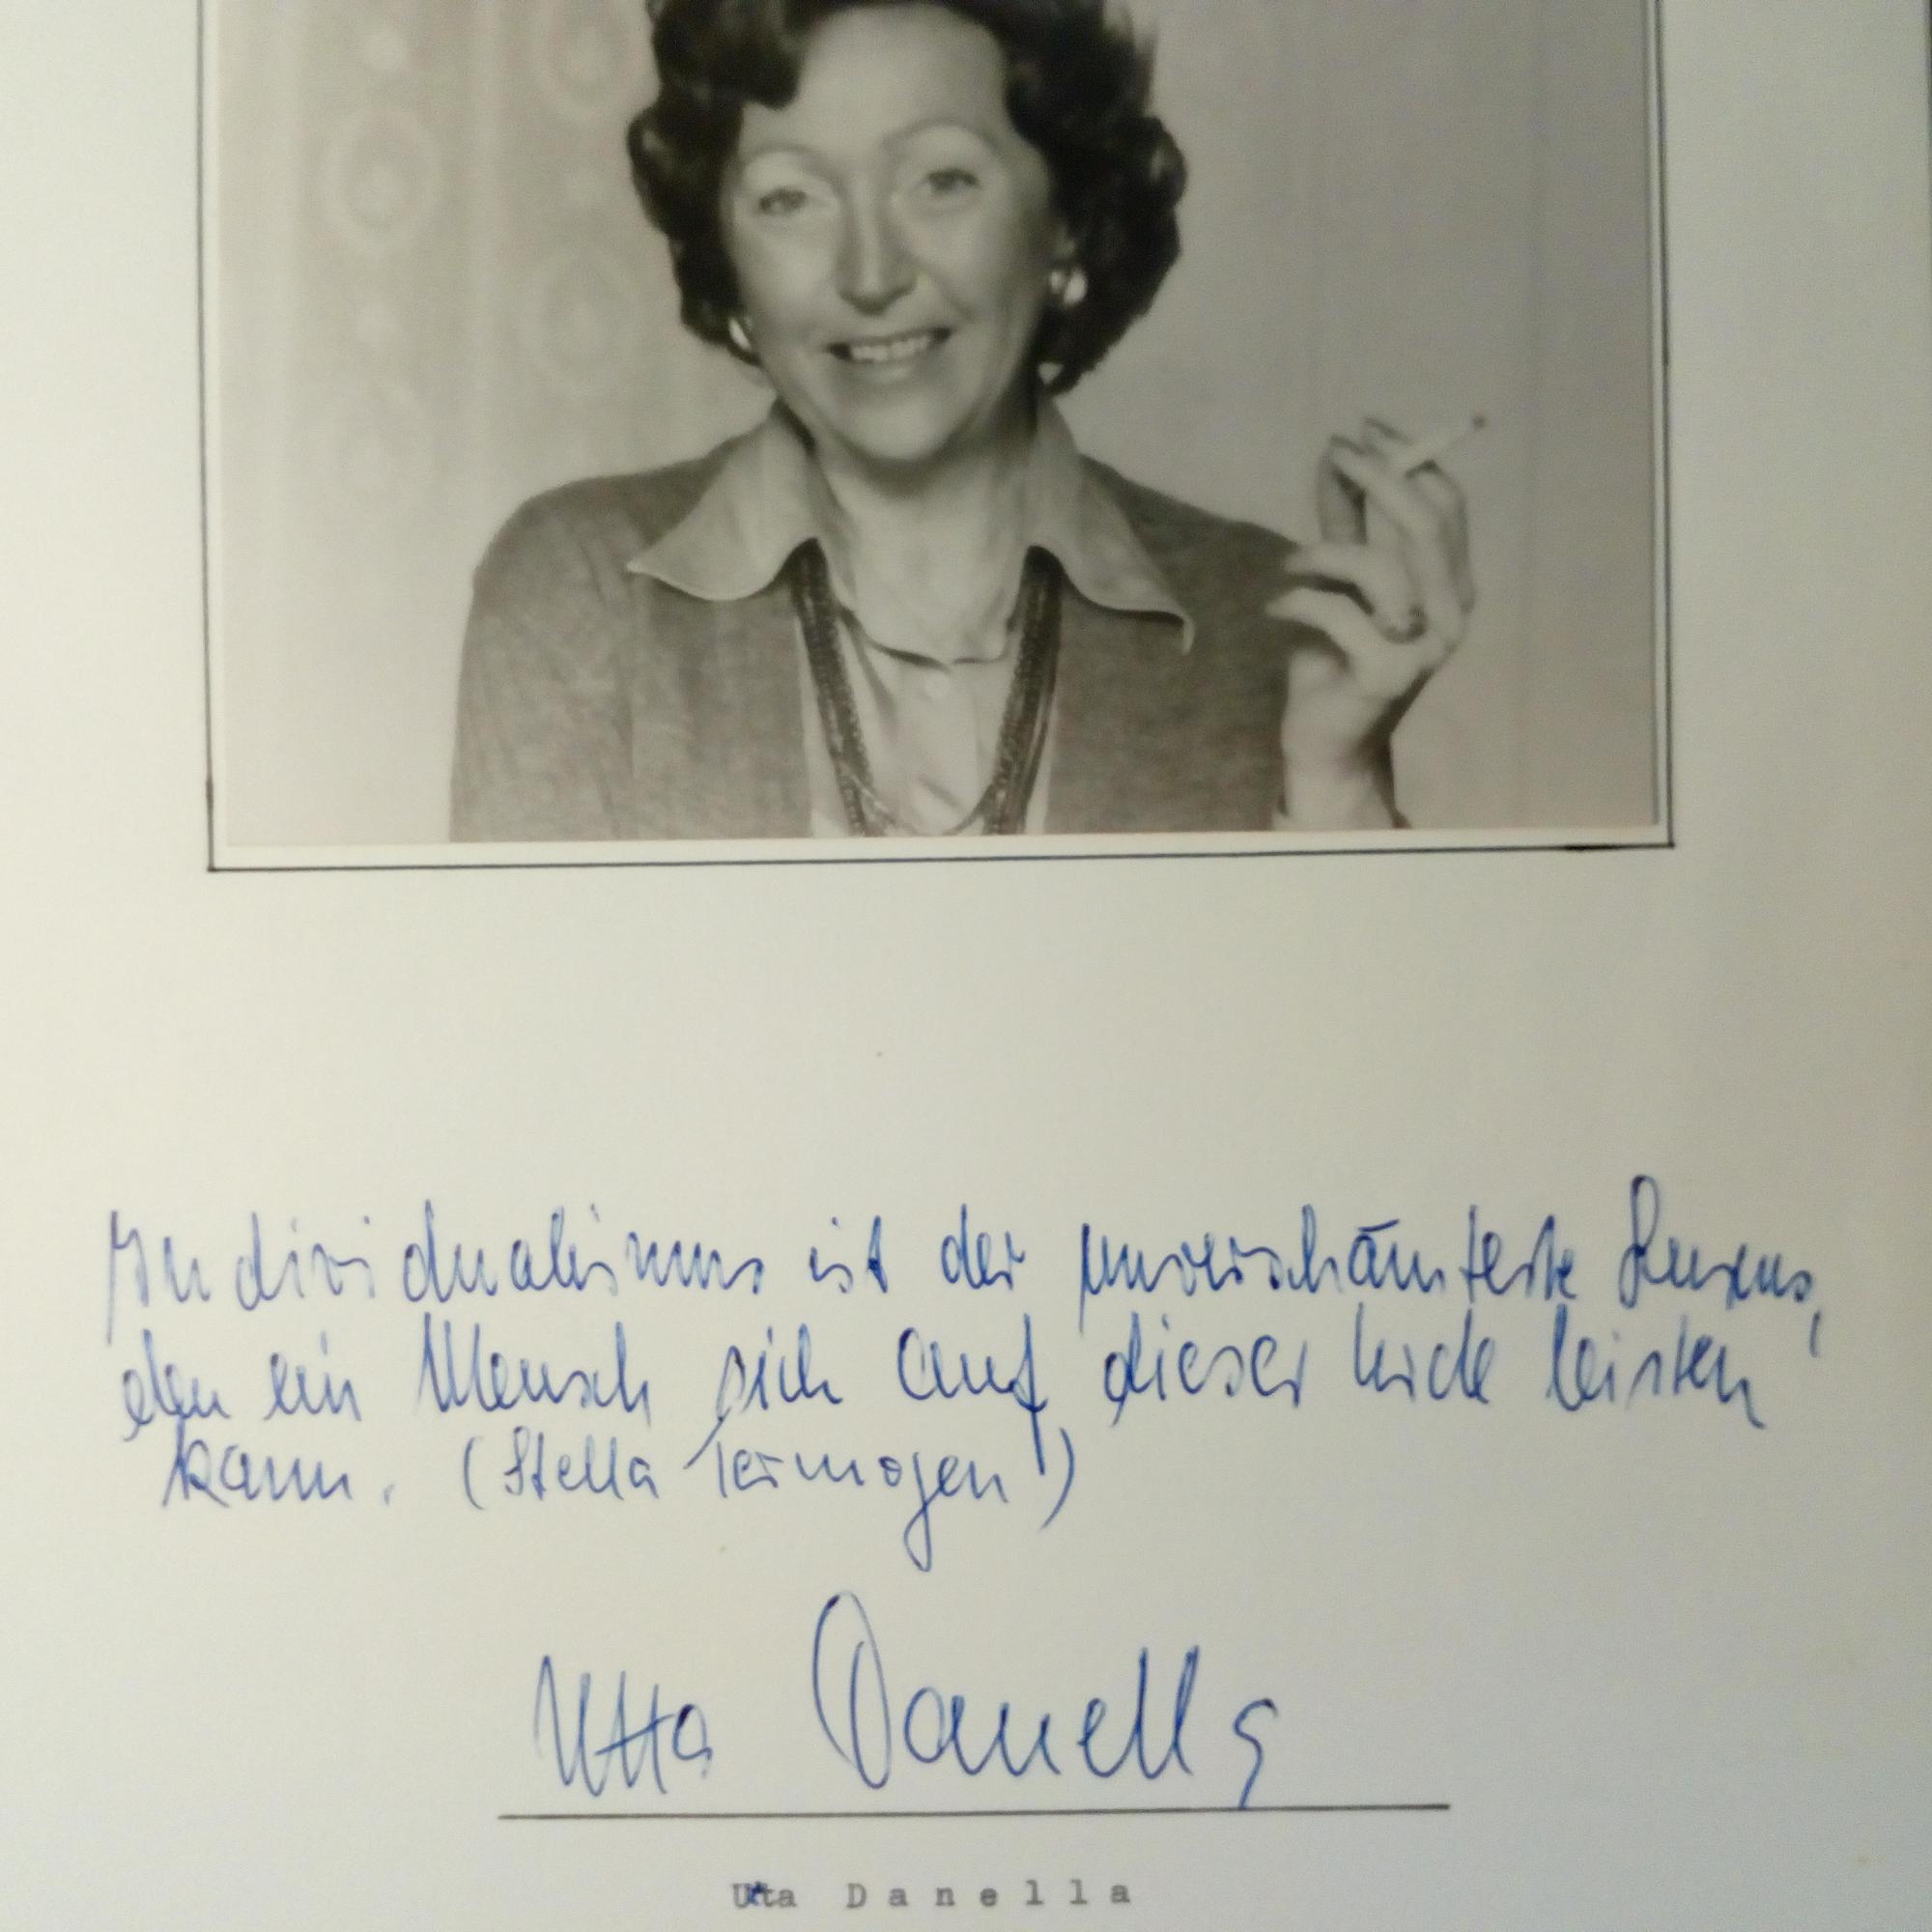 Individualismus ist der unverschämteste Luxus,
den ein Mensch sich auf dieser Erde leisten
kann. (Stella Termogen)
Utta Danella
Utta Danella